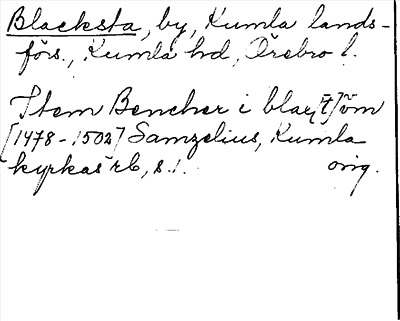 Blacksta, by, Kumla lands-
förs., Kumla hd, Örebro l.
Item Bencher i blax[t]öm
[1478-1502] Samzelius, Kumla
kyrkas rb, s.1. orig.